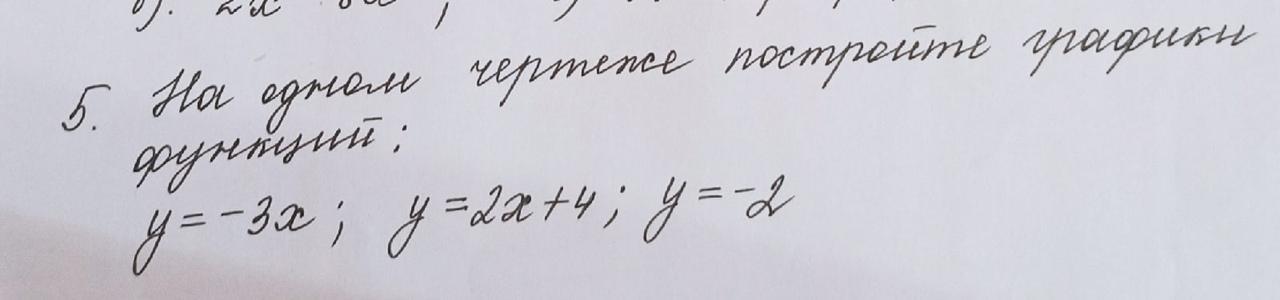 5. На одном чертеже постройте графики
функций:
y = -3x ; y = 2x + 4 ; y = -2